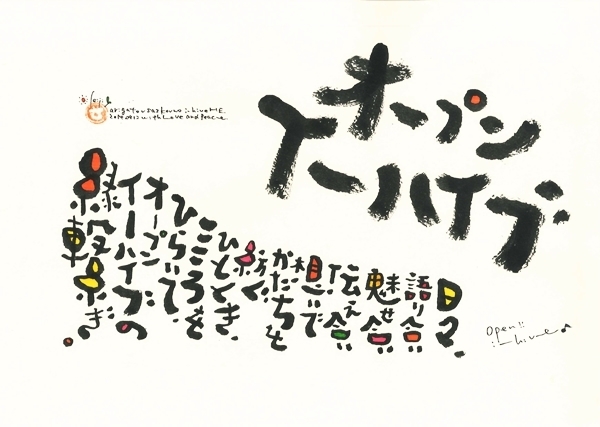 オープン
イーハイブ
日々、
語り合い
魅せ合い
伝え合い
想いで
かたちを
紡ぐ
ひととき、
こころを
ひらいて、
オープン
イーハイブの
縁繋ぎ。
with Love and Peace
Open!!
i-hive♪